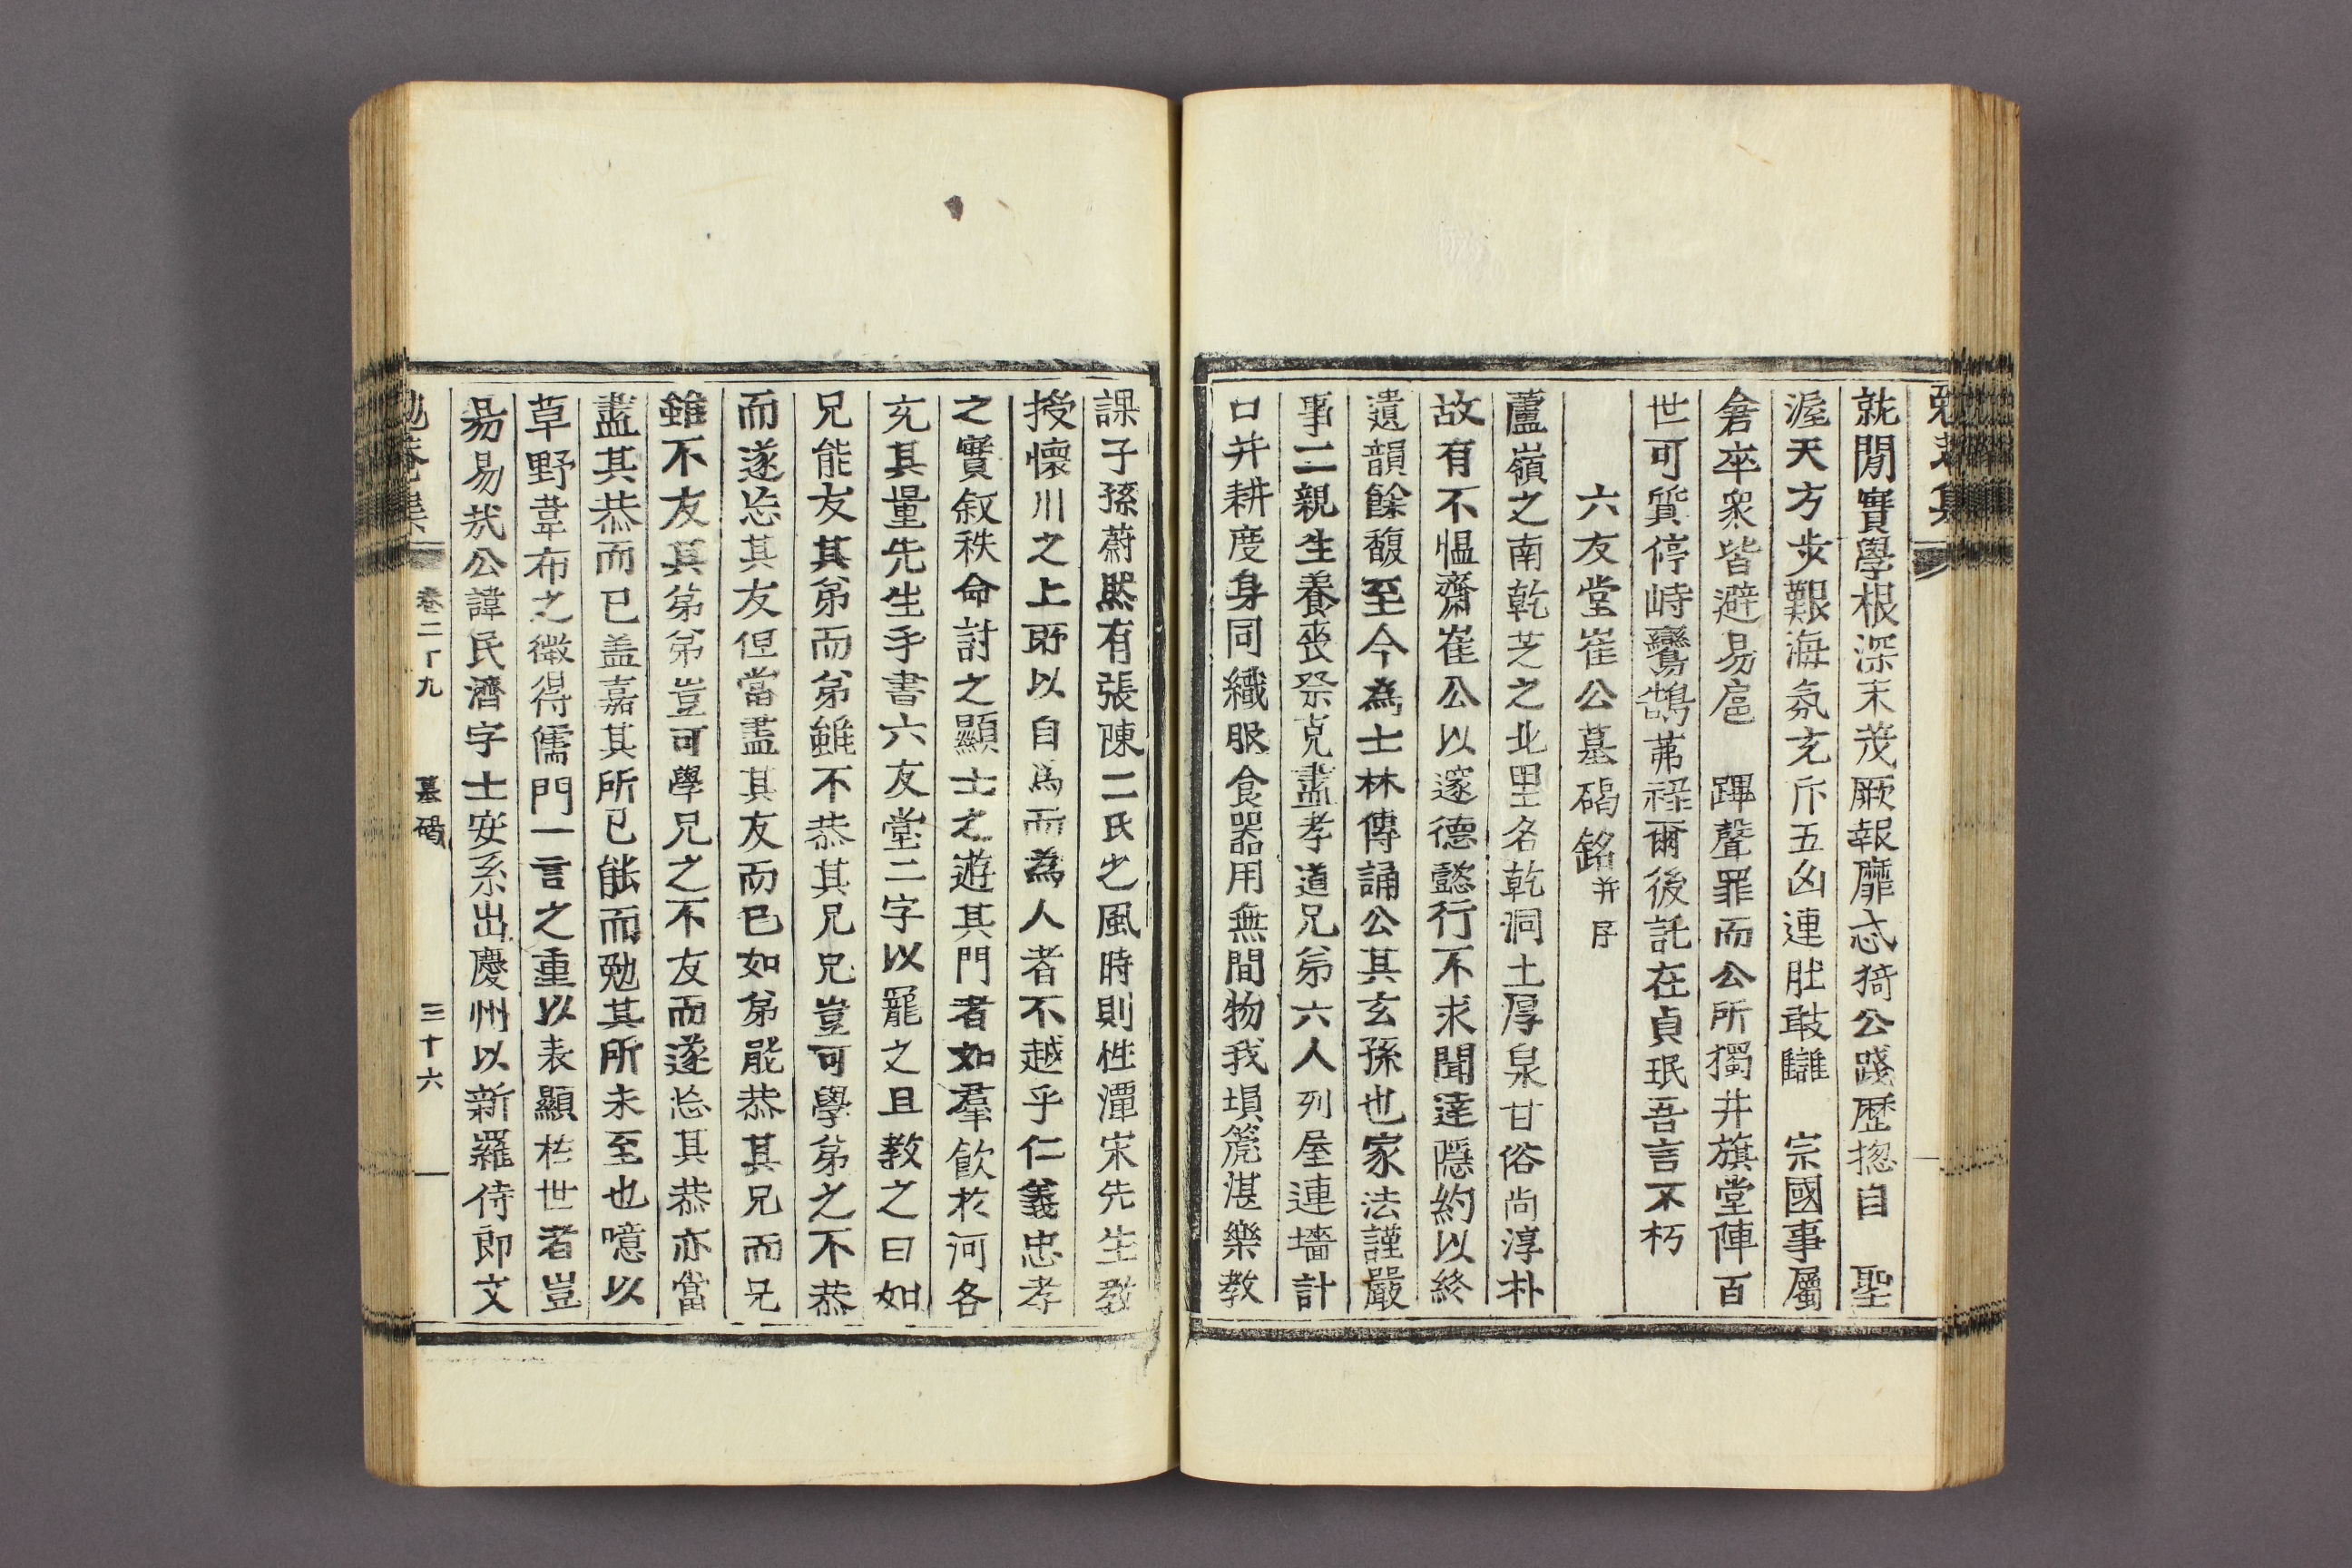 就閒實學根深末茂厥報靡忒猗公踐歷揔自　聖
渥天方步艱海氛充斥五凶連肚敢讎　宗國事屬
倉卒衆皆避易扈　蹕聲罪而公所獨井旗堂陣百
世可質停峙鸞鵠茀祿爾後託在貞珉吾言不朽
六友堂崔公墓碣銘并序
蘆嶺之南乾芝之北里名乾洞土厚泉甘俗尚淳朴
故有不慍齋崔公以邃德懿行不求聞達隱約以終
遺韻餘馥至今為士林傳誦公其玄孫也家法謹嚴
事二親生養喪祭克盡孝道兄弟六人列屋連墻計
口井耕度身同織服食器用無間物我塤篪湛樂教
課子孫蔚然有張陳二氏之風時則性潭宋先生教
授懷川之上所以自爲而為人者不越乎仁義忠孝
之實叙秩命討之顯士之遊其門者如羣飮於河各
充其量先生手書六友堂二字以寵之且教之曰如
兄能友其弟而弟雖不恭其兄兄豈可學弟之不恭
而遂忘其友但當盡其友而已如弟能恭其兄而兄
雖不友其弟弟豈可學兄之不友而遂忘其恭亦當
盡其恭而已盖嘉其所已能而勉其所未至也噫以
草野韋布之微得儒門一言之重以表顯於世者豈
易易哉公諱民濟字士安系出慶州以新羅侍郎文
勉菴集　卷二十九　墓碣　三十六